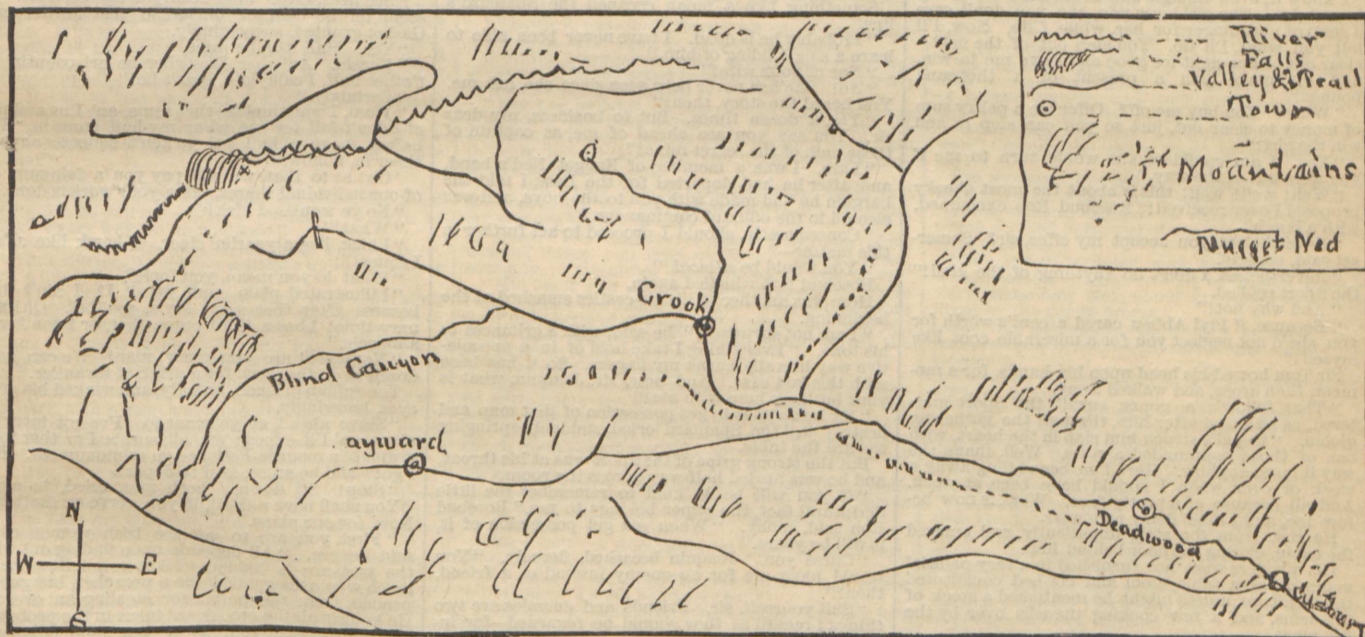 River
Falls
Valley & Trail
Town
Mountains
Nugget Ned
Crook
Blind Canyon
ayward
Deadwood
N
W E
S